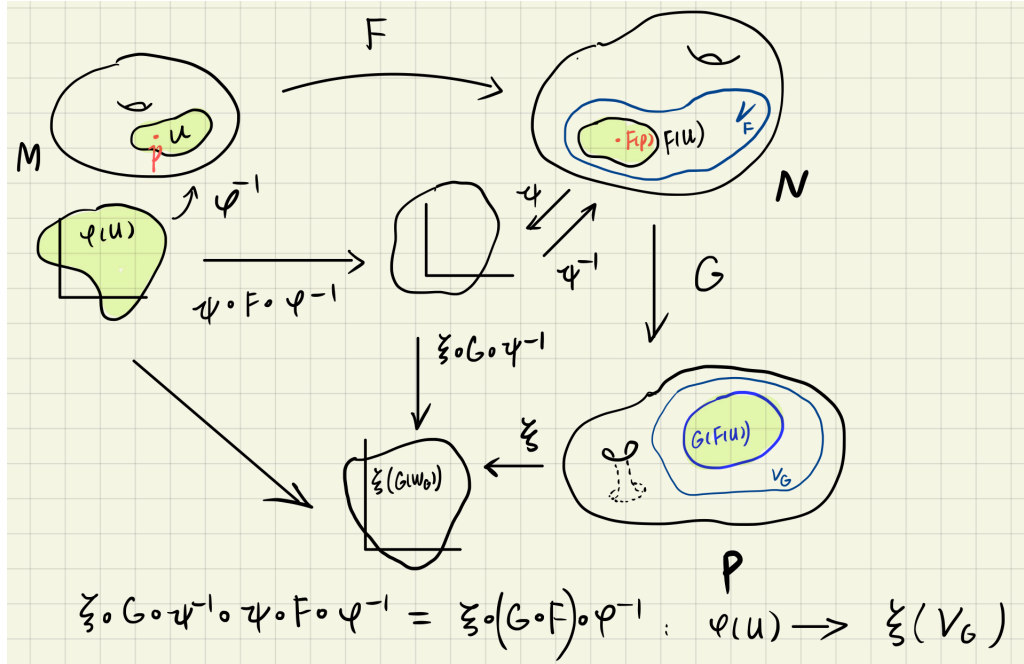 F
M
U
p
F(p)
F(U)
V_F
N
φ(U)
φ⁻¹
ψ
ψ⁻¹
ψ∘F∘φ⁻¹
G
ξ∘G∘ψ⁻¹
ξ
ξ(G(W_G))
G(F(U))
V_G
P
ξ∘G∘ψ⁻¹∘ψ∘F∘φ⁻¹ = ξ∘(G∘F)∘φ⁻¹ : φ(U) → ξ(V_G)